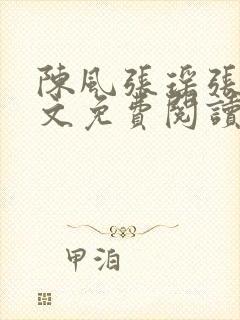 陳風張瑤張
文免費閱讀
甲泊